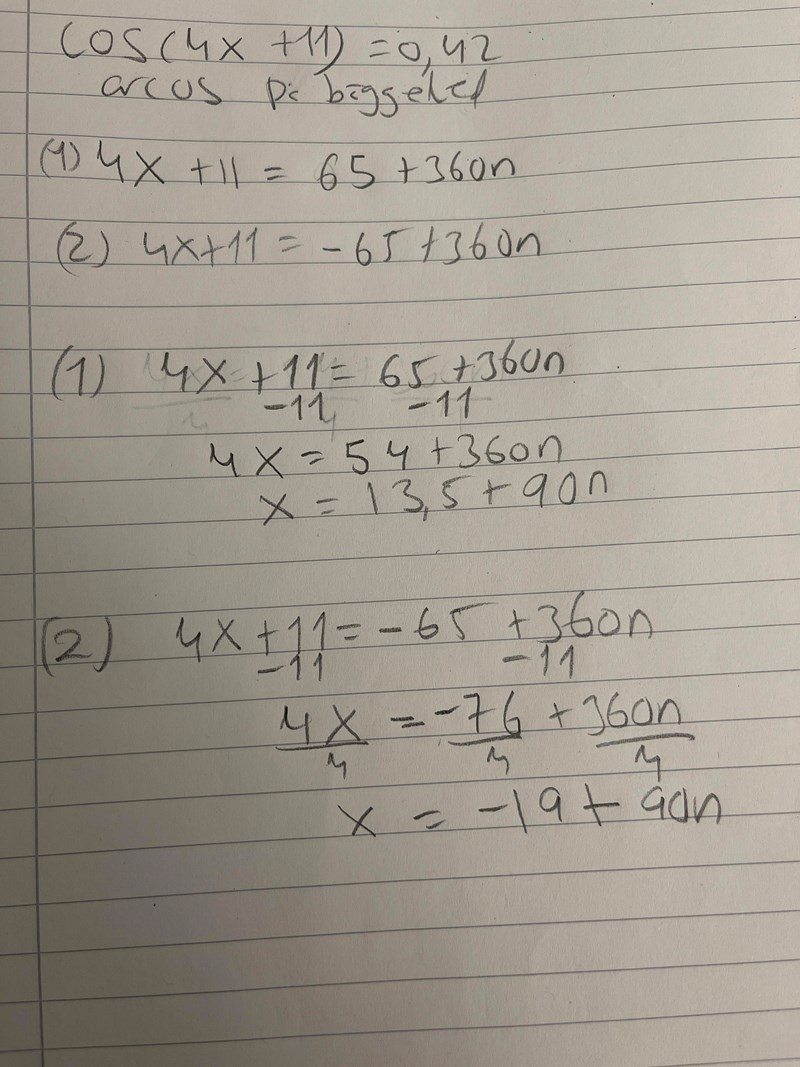 cos(4x +11) = 0,42
arcos på bägge led
(1) 4x +11 = 65 +360n
(2) 4x+11 = -65 +360n
(1) 4x +11 = 65 +360n
-11 -11
4x = 54 +360n
x = 13,5 + 90n
(2) 4x +11 = -65 +360n
-11 -11
4x = -76 + 360n
4 4 4
x = -19 + 90n